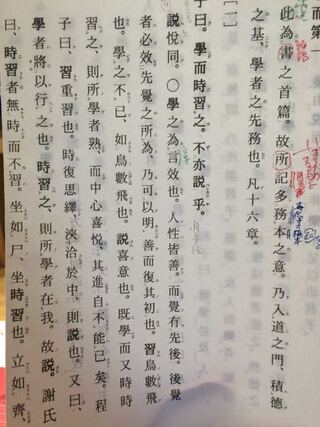 而第一
此為書之首篇。故所記多務本之意。乃入道之門、積德
之基、學者之先務也。凡十六章。
[一]
子曰。學而時習之。不亦説乎。
説悦同。○學之為言效也。人性皆善。而覺有先後。後覺
者必效先覺之所為、乃可以明善而復其初也。習鳥數飛
也。學之不已、如鳥數飛也。説喜意也。既學而又時時
習之、則所學者熟、而中心喜悦、其進自不能已矣。程
子曰、習重習也。時復思繹、浹洽於中、則説也。又曰、
學者將以行之也。時習之、則所學者在我。故説。謝氏
曰、時習者無時而不習。坐如尸、坐時習也。立如齊、